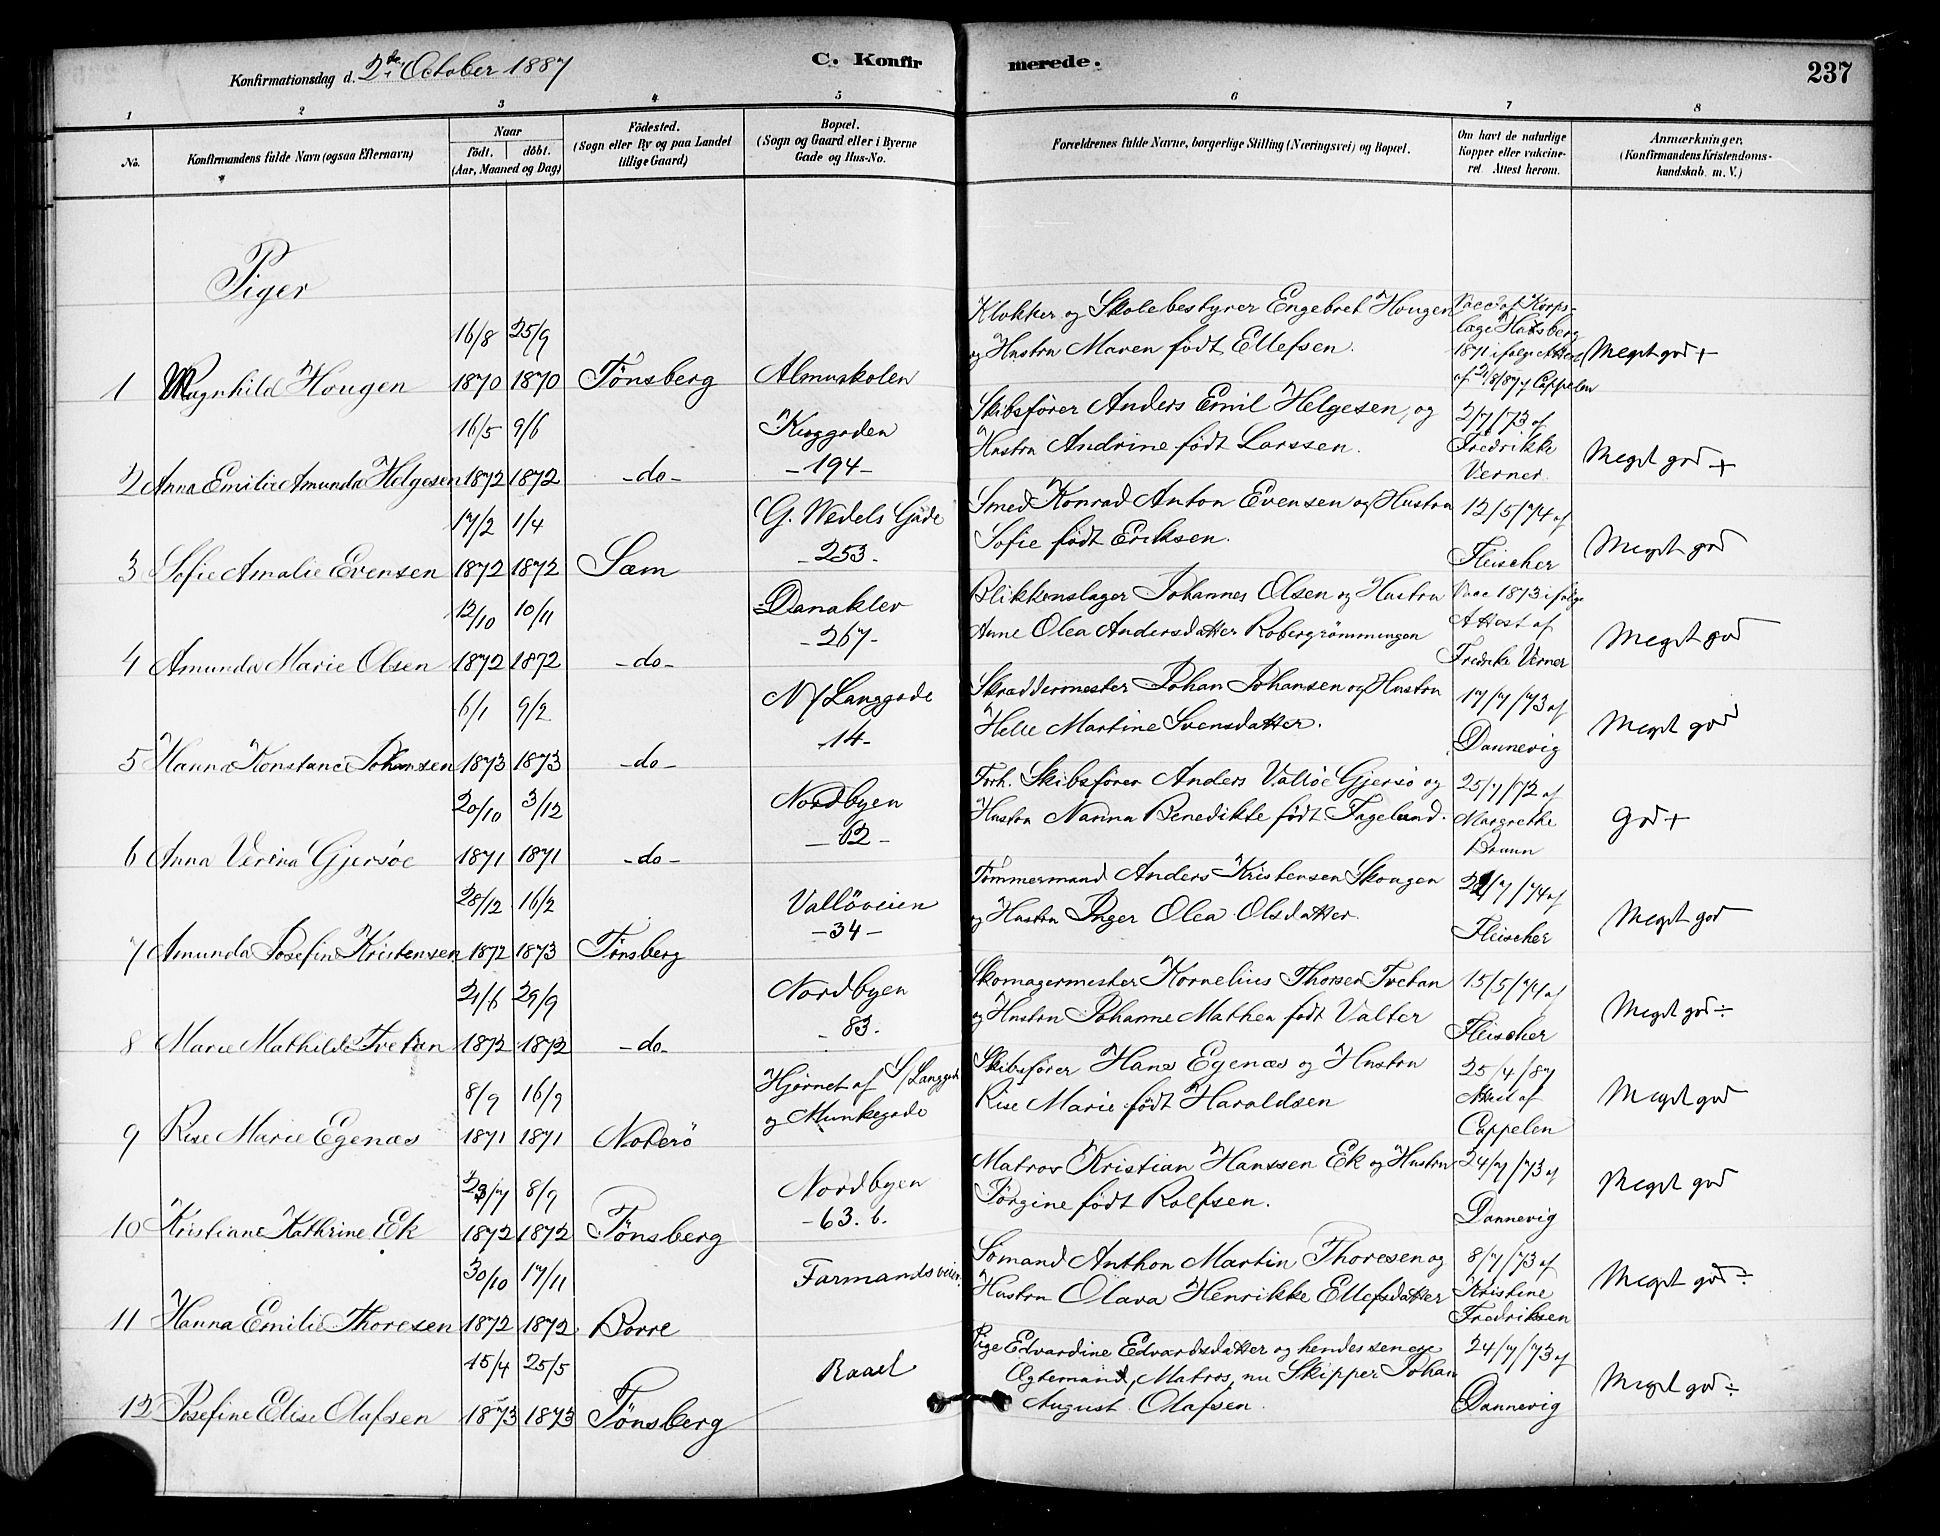 Konfirmationsdag d. 2de October 1887
C. Konfirmerede.
237
1 2 3 4 5 6 7 8
No.
Konfirmandens fulde Navn (ogsaa Efternavn)
Naar
födt. döbt.
(Aar, Maaned og Dag)
Födested.
(Sogn eller By og paa Landet
tillige Gaard)
Bopæl.
(Sogn og Gaard eller i Byerne
Gade og Hus-No.
Forældrenes fulde Navne, borgerlige Stilling (Næringsvei) og Bopæl.
Om havt de naturlige
Kopper eller vakcine-
ret. Attest herom.
Anmærkninger.
(Konfirmandens Kristendoms-
kundskab. m. V.)
Piger
16/8 25/9
1 Magnhild Hougen 1870 1870 Tønsberg Almuskolen
Klokker og Skolebestyrer Engebret Hougen
og Hustru Maren født Ellefsen.
Vacc. af Korps-
læge
1871 ifølge Attest
af 21/8/87 Cappelen
Meget god +
16/5 9/6
2 Anna Emilie Amunda Helgesen 1872 1872 -do-
-194-
Skibsfører Anders Emil Helgesen, og
Hustru Andrine født Larssen.
2/7/73 af
Fredrikke
Verner.
Meget god +
17/2 1/4
3 Sofie Amalie Evensen 1872 1872 Sæm
G. Wedels Gade
-253-
Smed Konrad Anton Evensen og Hustru
Sofie født Eriksen.
12/5/74 af
Fleischer
Meget god
12/10 10/11
4 Amunda Marie Olsen 1872 1872 -do-
Danaklev
-267-
Blikkenslager Johannes Olsen og Hustru
Anne Olea Andersdatter Robergrømmingen
Vacc 1873 ifølge
Attest af
Fredrike Verner
Meget god
6/1 9/2
5 Hanna Konstance Johansen 1873 1873 -do-
N/Langgade
-14-
Skræddermester Johan Johansen og Hustru
Helle Martine Svensdatter.
17/7/73 af
Dannevig
Meget god
20/10 3/12
6 Anna Verina Gjersøe 1871 1871 -do-
Nordbyen
-62-
Forh. Skibsfører Anders Valløe Gjersø og
Hustru Nanna Benedikte født Fagelund.
25/7/72 af
Margrethe
Bruun
God +
28/12 16/2
7 Amunda Josefin Kristensen 1872 1873 Tønsberg
Vallöveien
-34-
Tømmermand Anders Kristensen Skougen
og Hustru Inger Olea Olsdatter.
/7/74 af
Fleischer
Meget god
21/6 29/9
8 Marie Mathilde Tvetan 1872 1872 -do-
Nordbyen
-83.
Skomagermester Kornelius Thorsen Tvetan
og Hustru Johanne Mathea født Valter
15/5/74 af
Fleischer
Meget god ÷
8/9 16/9
9 Rise Marie Egenæs 1871 1871 Nøterö
Hjørnet af S/Langgade
og Munkegade
Skibsfører Hans Egenæs og Hustru
Rise Marie født Haraldsen
25/4/87
Attest af
Cappelen
Meget god
23/7 8/9
10 Kristiane Kathrine Ek 1872 1872 Tønsberg
Nordbyen
-63. b.
Matros Kristian Hanssen Ek og Hustru
Jørgine født Rolfsen.
24/7/73 af
Dannevig
Meget god
30/10 17/11
11 Hanna Emilie Thoresen 1872 1872 Borre
Farmandsveien
Sømand Anthon Martin Thoresen og
Hustru Olava Henrikke Ellefsdatter
8/7/73 af
Kristine
Fredriksen
Meget god ÷
15/4 25/5
12 Josefine Elise Olafsen 1873 1873 Tønsberg
Raael
Pige Edvardine Edvardsdatter og hendes senere
Ægtemand, Matros, nu Skipper Johan
August Olafsen.
24/7/73 af
Dannevig
Meget god ÷